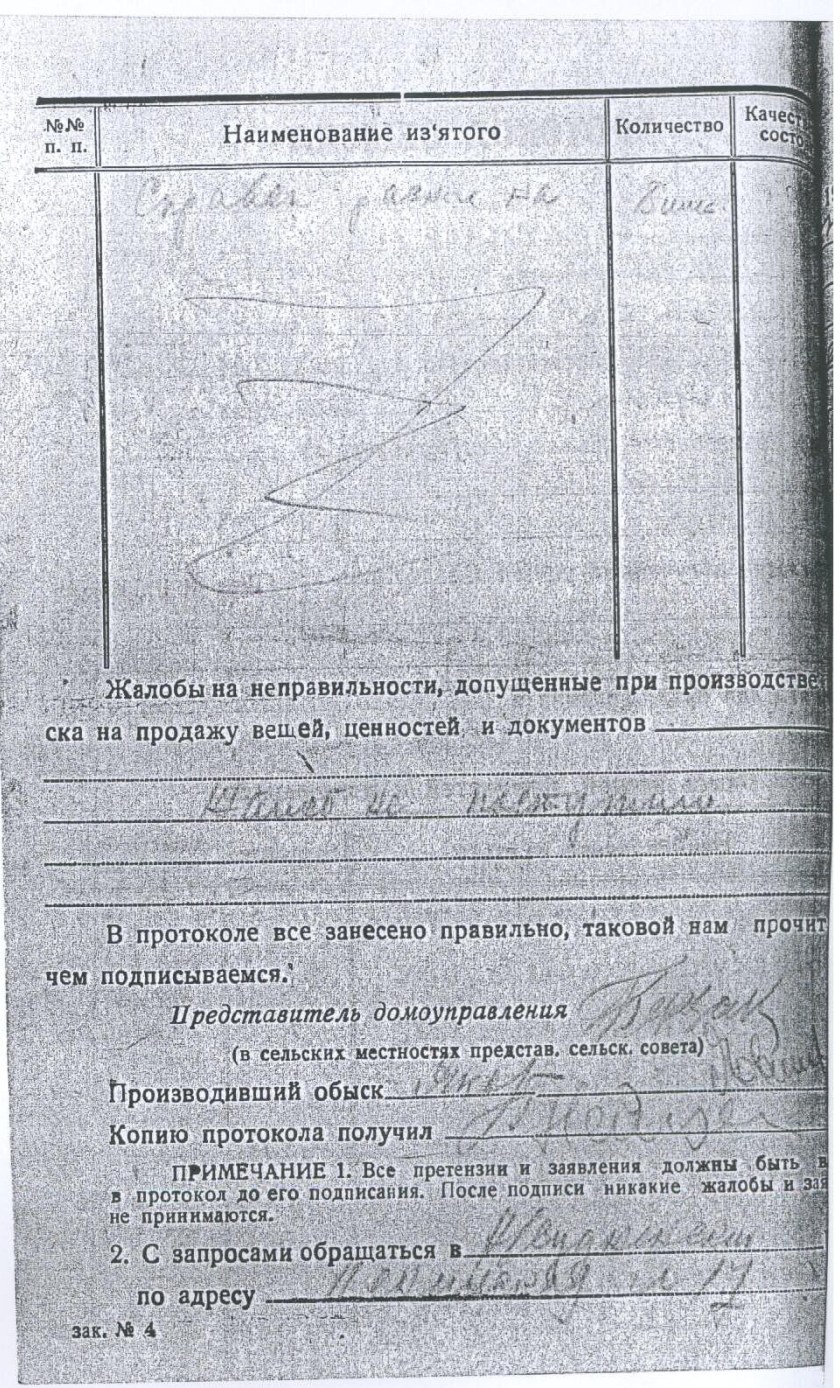 №№ п. п. Наименование из'ятого Количество Качест состо
Справки разные на 8 шт.
Жалобы на неправильности, допущенные при производстве
ска на продажу вещей, ценностей, и документов
Жалоб не поступило
В протоколе все занесено правильно, таковой нам прочит
чем подписываемся.
Представитель домоуправления
(в сельских местностях представ. сельск. совета)
Производивший обыск
Копию протокола получил
ПРИМЕЧАНИЕ 1. Все претензии и заявления должны быть в
в протокол до его подписания. После подписи никакие жалобы и зая
не принимаются.
2. С запросами обращаться в
по адресу 17
зак. № 4